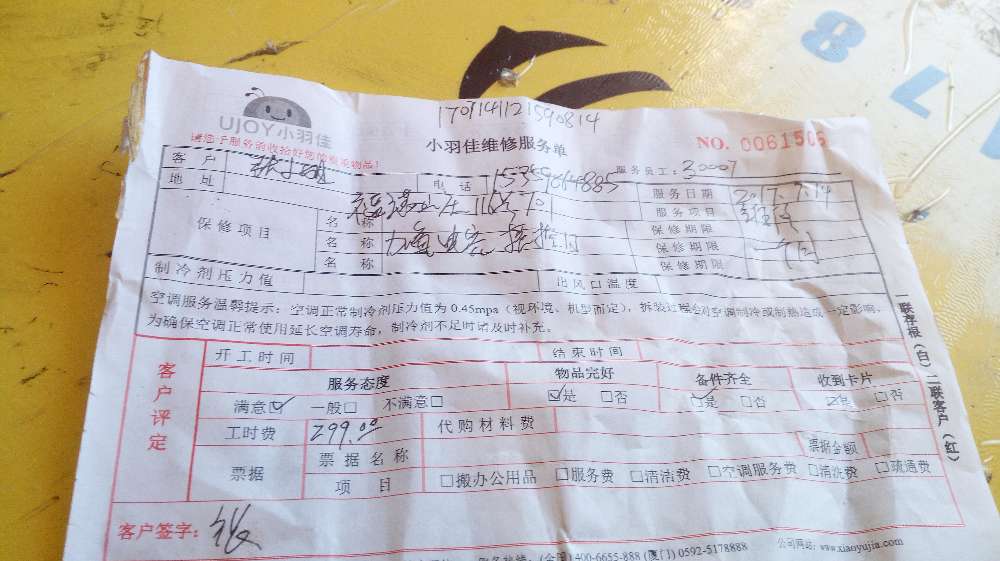 170714121590814
UJOY小羽佳
请您予服务前收拾好您的贵重物品!
小羽佳维修服务单
NO. 0061506
服务员工: 30007
客户
电话
服务日期 2017.7.14
地址
服务项目 维修
保修项目
名称
保修期限
名称
保修期限
名称
保修期限
制冷剂压力值
出风口温度
空调服务温馨提示: 空调正常制冷剂压力值为 0.45mpa (视环境、机型而定), 拆装过程会对空调制冷或制热造成一定影响,
为确保空调正常使用延长空调寿命, 制冷剂不足时请及时补充。
一联存根(白) 二联客户(红)
客户评定
开工时间
结束时间
服务态度
物品完好
备件齐全
收到卡片
满意☑ 一般□ 不满意□
☑是 □否
☑是 □否
☑是 □否
工时费 299.00
代购材料费
票据
票据名称
票据金额
项目
□搬办公用品 □服务费 □清洁费 □空调服务费 □清洗费 □疏通费
客户签字:
(全国) 400-6655-888 (厦门) 0592-5178888
公司网站: www.xiaoyujia.com